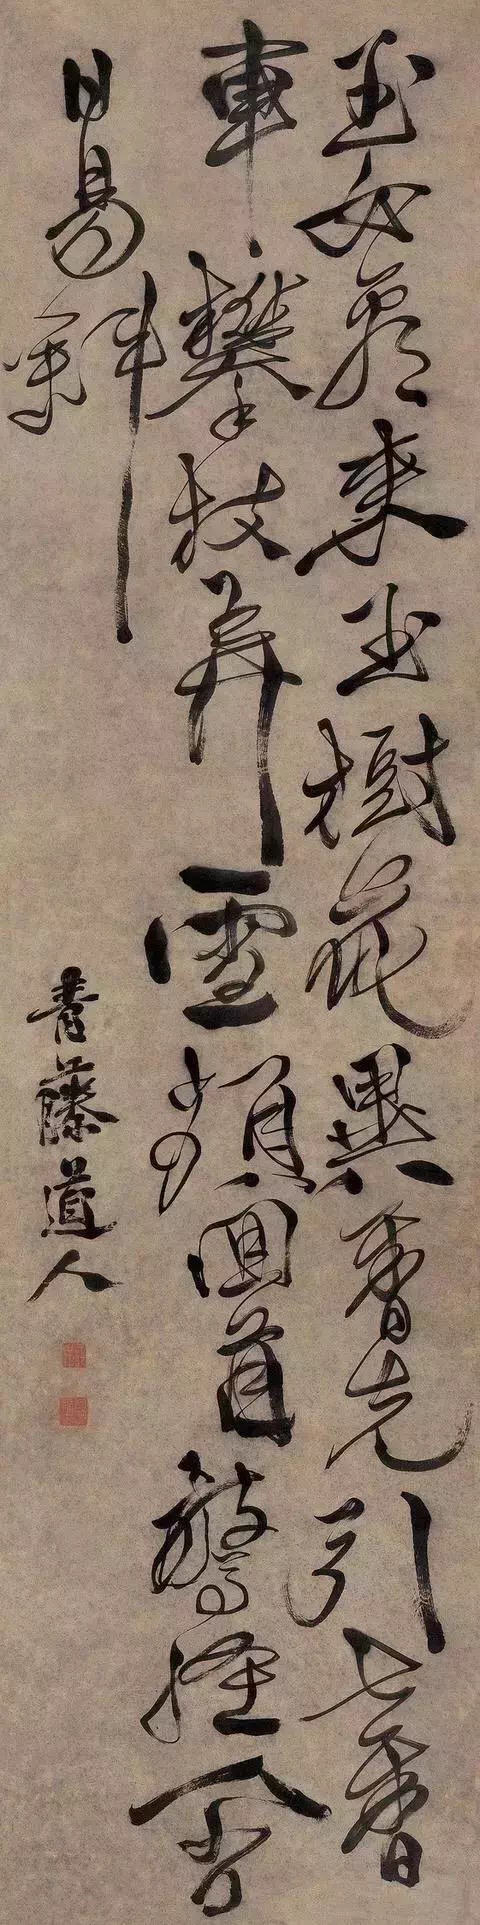 玉女来玉樹花異香先引七香
車攀枝弄雪頻回首驚怪人間
日易斜
青藤道人